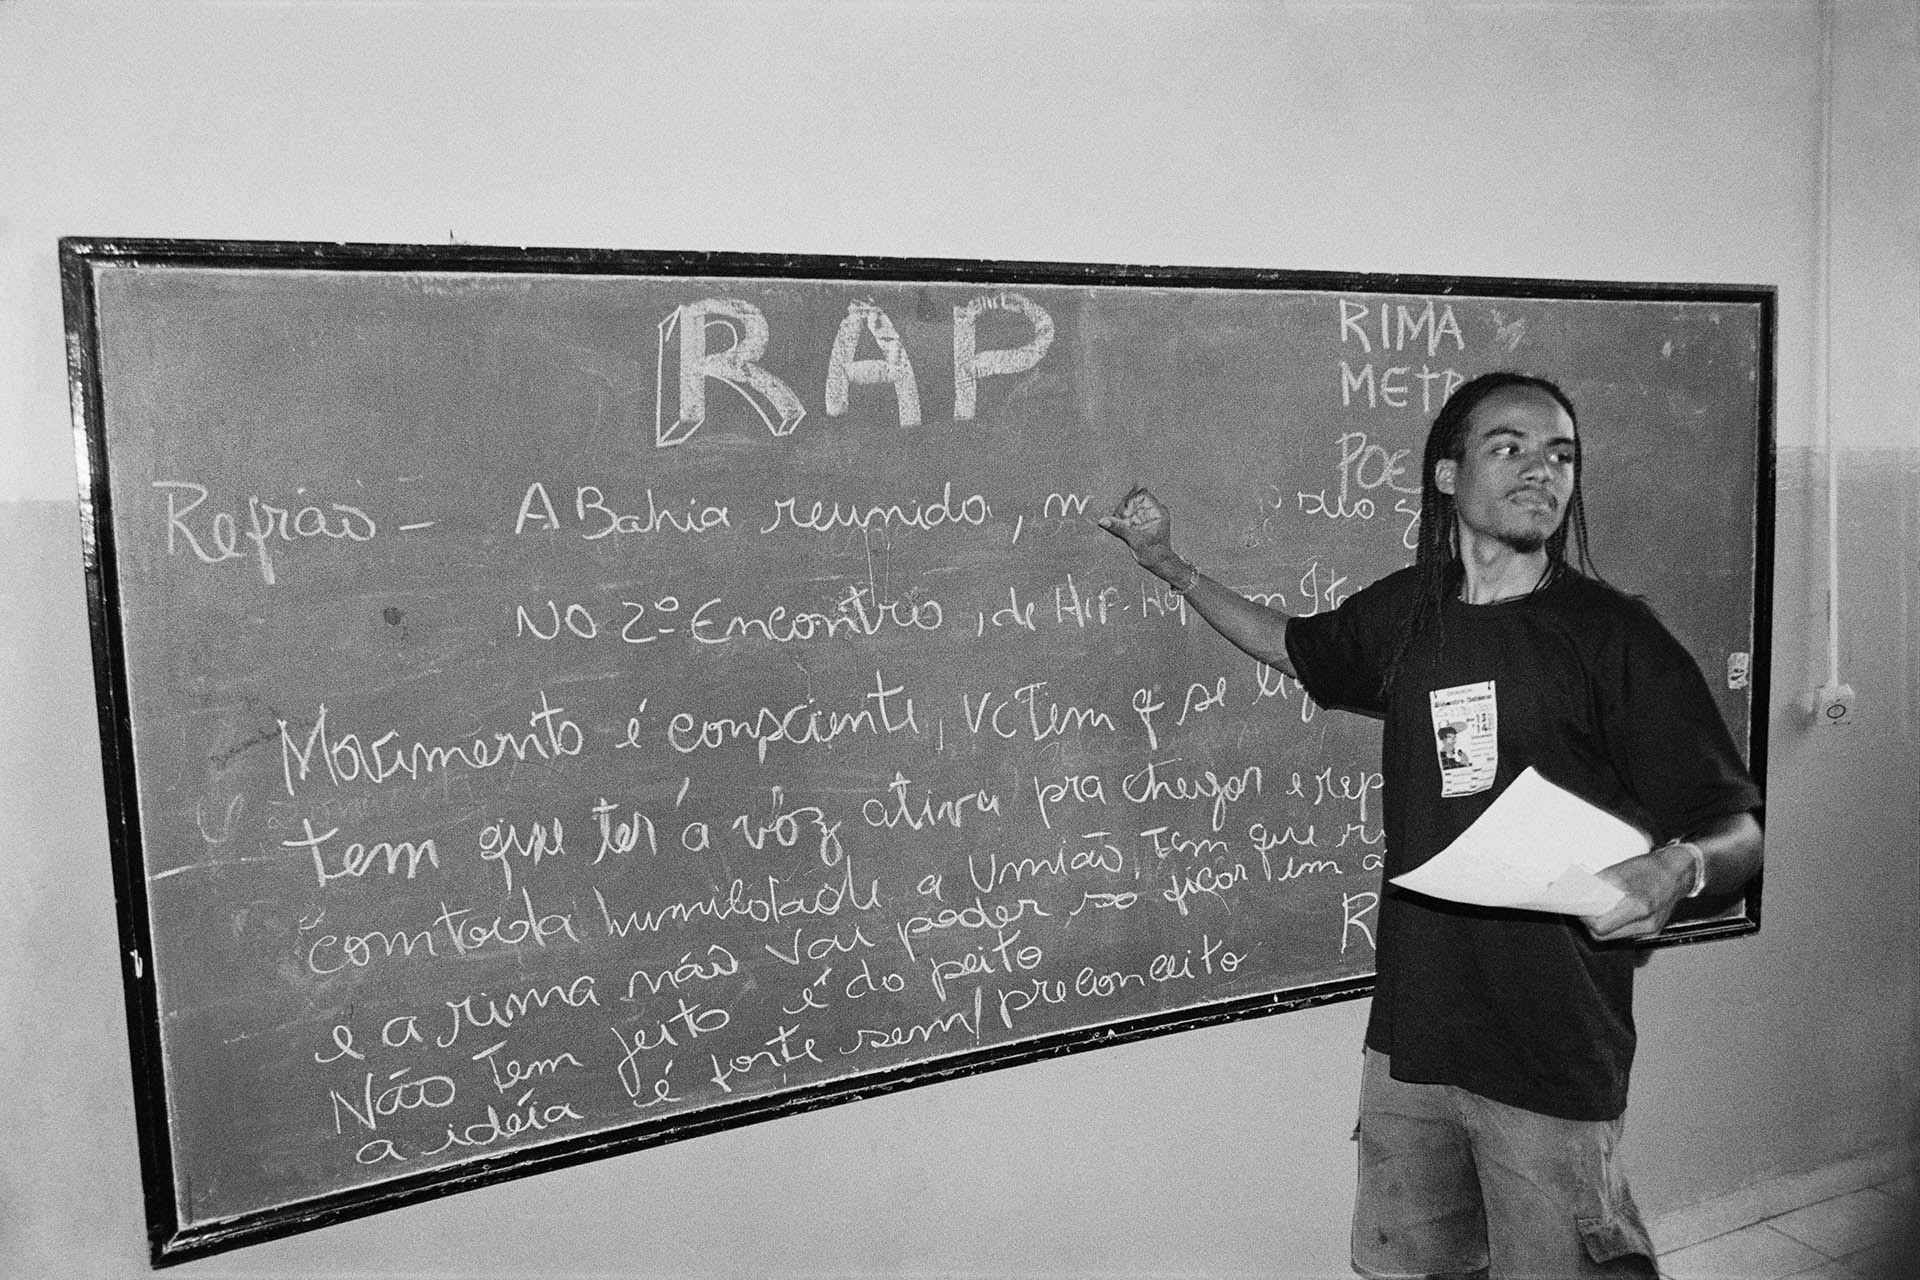 RAP
RIMA
METR
POE
Refrão - A Bahia reunida, m
NO 2º Encontro, de HIP-HOP em Ita
Movimento é consciente, vc Tem q se lig
tem que ter a vóz ativa pra chegar e rep
com toda humildade a União, tem que
e a rima não vai poder só ficar em
Não Tem jeito é do peito
R
a idéia é forte sem preconceito
13
14